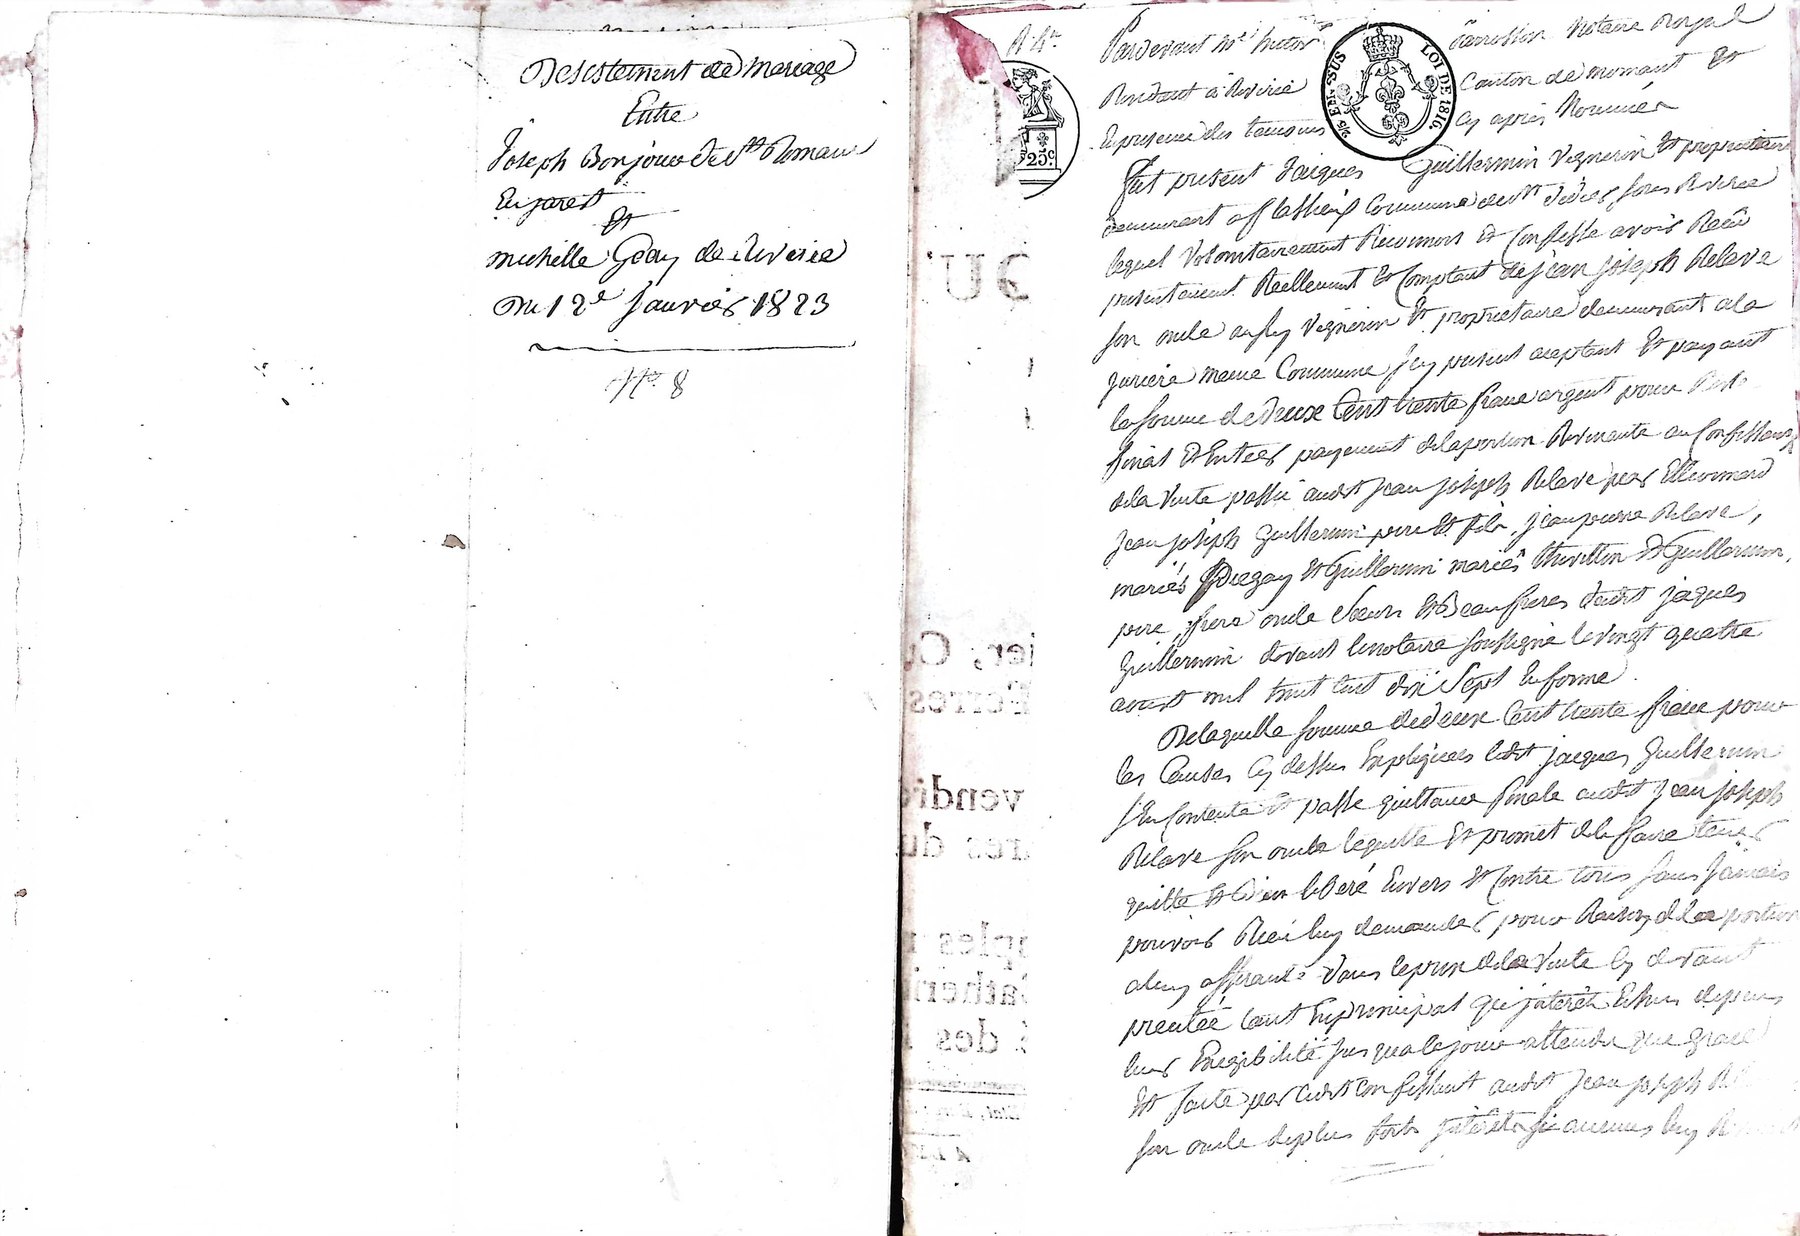 Desistement de Mariage
Entre
Joseph Bonjour de St Romain
En jarest
Et
michelle Geay de Riverie
Du 12e Janvier 1823
No 8
25c
25 EN. SUS
LOI DE 1816.
Pardevant Me Notaire Royal
Residant à Riverie Canton de mornant Et
En presence des temoins Cy après Nommés
Fut present Jacques Guillermin Vigneron Et proprietaire
demeurant Commune de St Didier sous Riverie
lequel Volontairement Reconnois Et Confesse avoir Recû
presentement Reellement Et Comptant de jean joseph Relave
son oncle aussy Vigneron Et proprietaire demeurant a la
meme Commune Icy present aceptant Et payant
la somme de deux Cent trente franc argent pour Reste
final Et Entier payement de la portion Revenante au Confessant
de la Vente passée audit Jean joseph Relave par
Jean joseph Guillermin pere Et fils, jean pierre Relave,
mariés Et Guillermin mariés Thivillon Et Guillermin,
pere, frere oncle Soeurs Et Beaufreres dudit jaques
Guillermin devant le notaire soussigné le vingt quatre
aoust mil huit cent dix Sept En forme.
De laquelle somme de deux Cent trente franc pour
les Causes Cy dessus Expliquées ledit jacques Guillermin
s'En Contente Et passe quittance finale audit Jean joseph
Relave son oncle le quitte Et promet de le faire tenir
quitte Et Bien liberé Envers Et Contre tous sans jamais
pouvoir Rien luy demander pour Raison de la portion
a luy afferante dans le prix de la Vente Cy devant
tant En principal qu'jnterêts Echus depuis
leur Exigibilité jusqua ce jour attendu que grace
Est faite par ledit Confessant audit Jean joseph
son oncle de plus forts jnterêts si aucuns luy